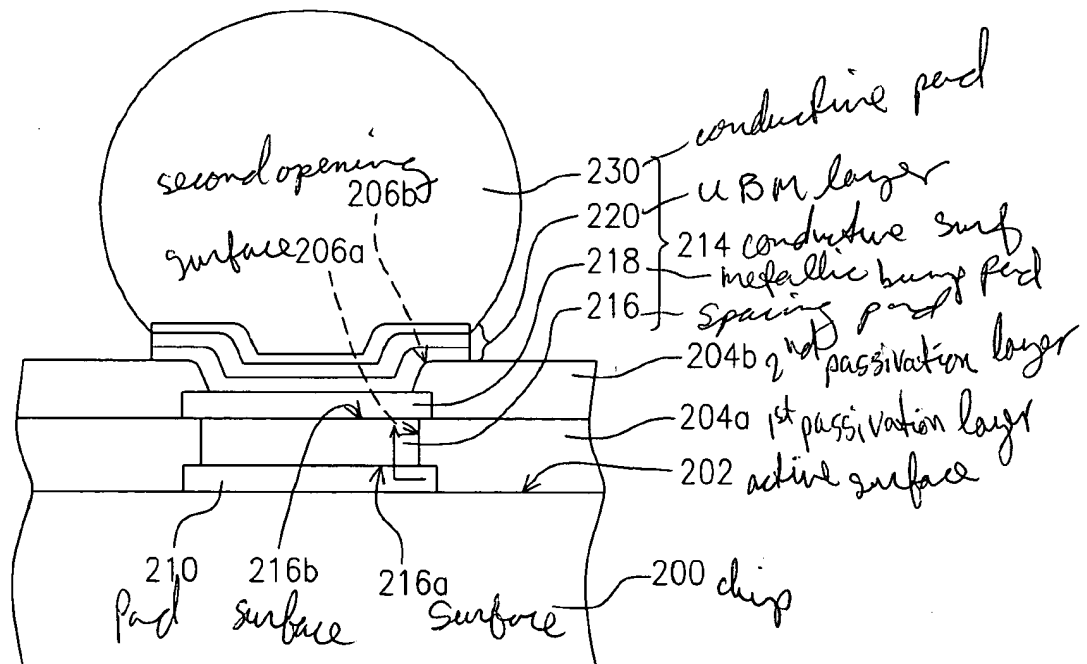 conductive pad
second opening
206b
230
220 UBM layer
surface 206a
214 conductive surf
218 metallic bump pad
216 spacing pad
204b 2nd passivation layer
204a 1st passivation layer
202 active surface
210 216b 216a 200 chip
Pad surface Surface